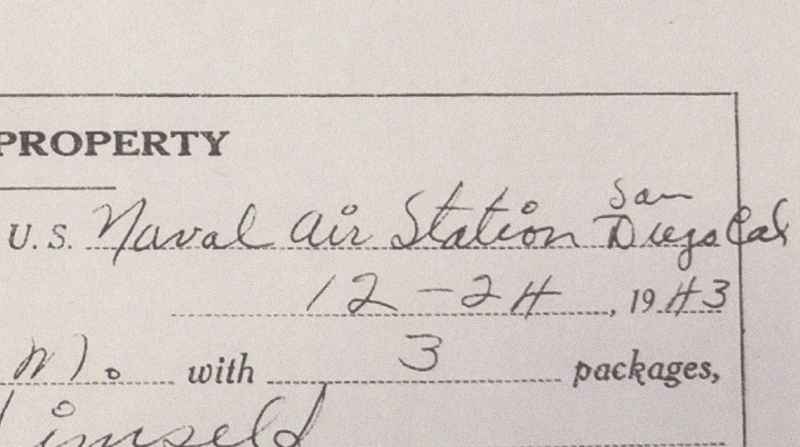 PROPERTY
San
U. S. Naval Air Station Diego Cal
12-24, 1943
with 3 packages,
himself